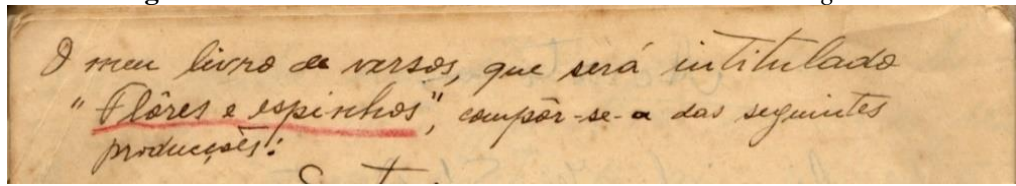 O meu livro de versos, que será intitulado
"Flôres e espinhos", compôr-se-a das seguintes
producções: